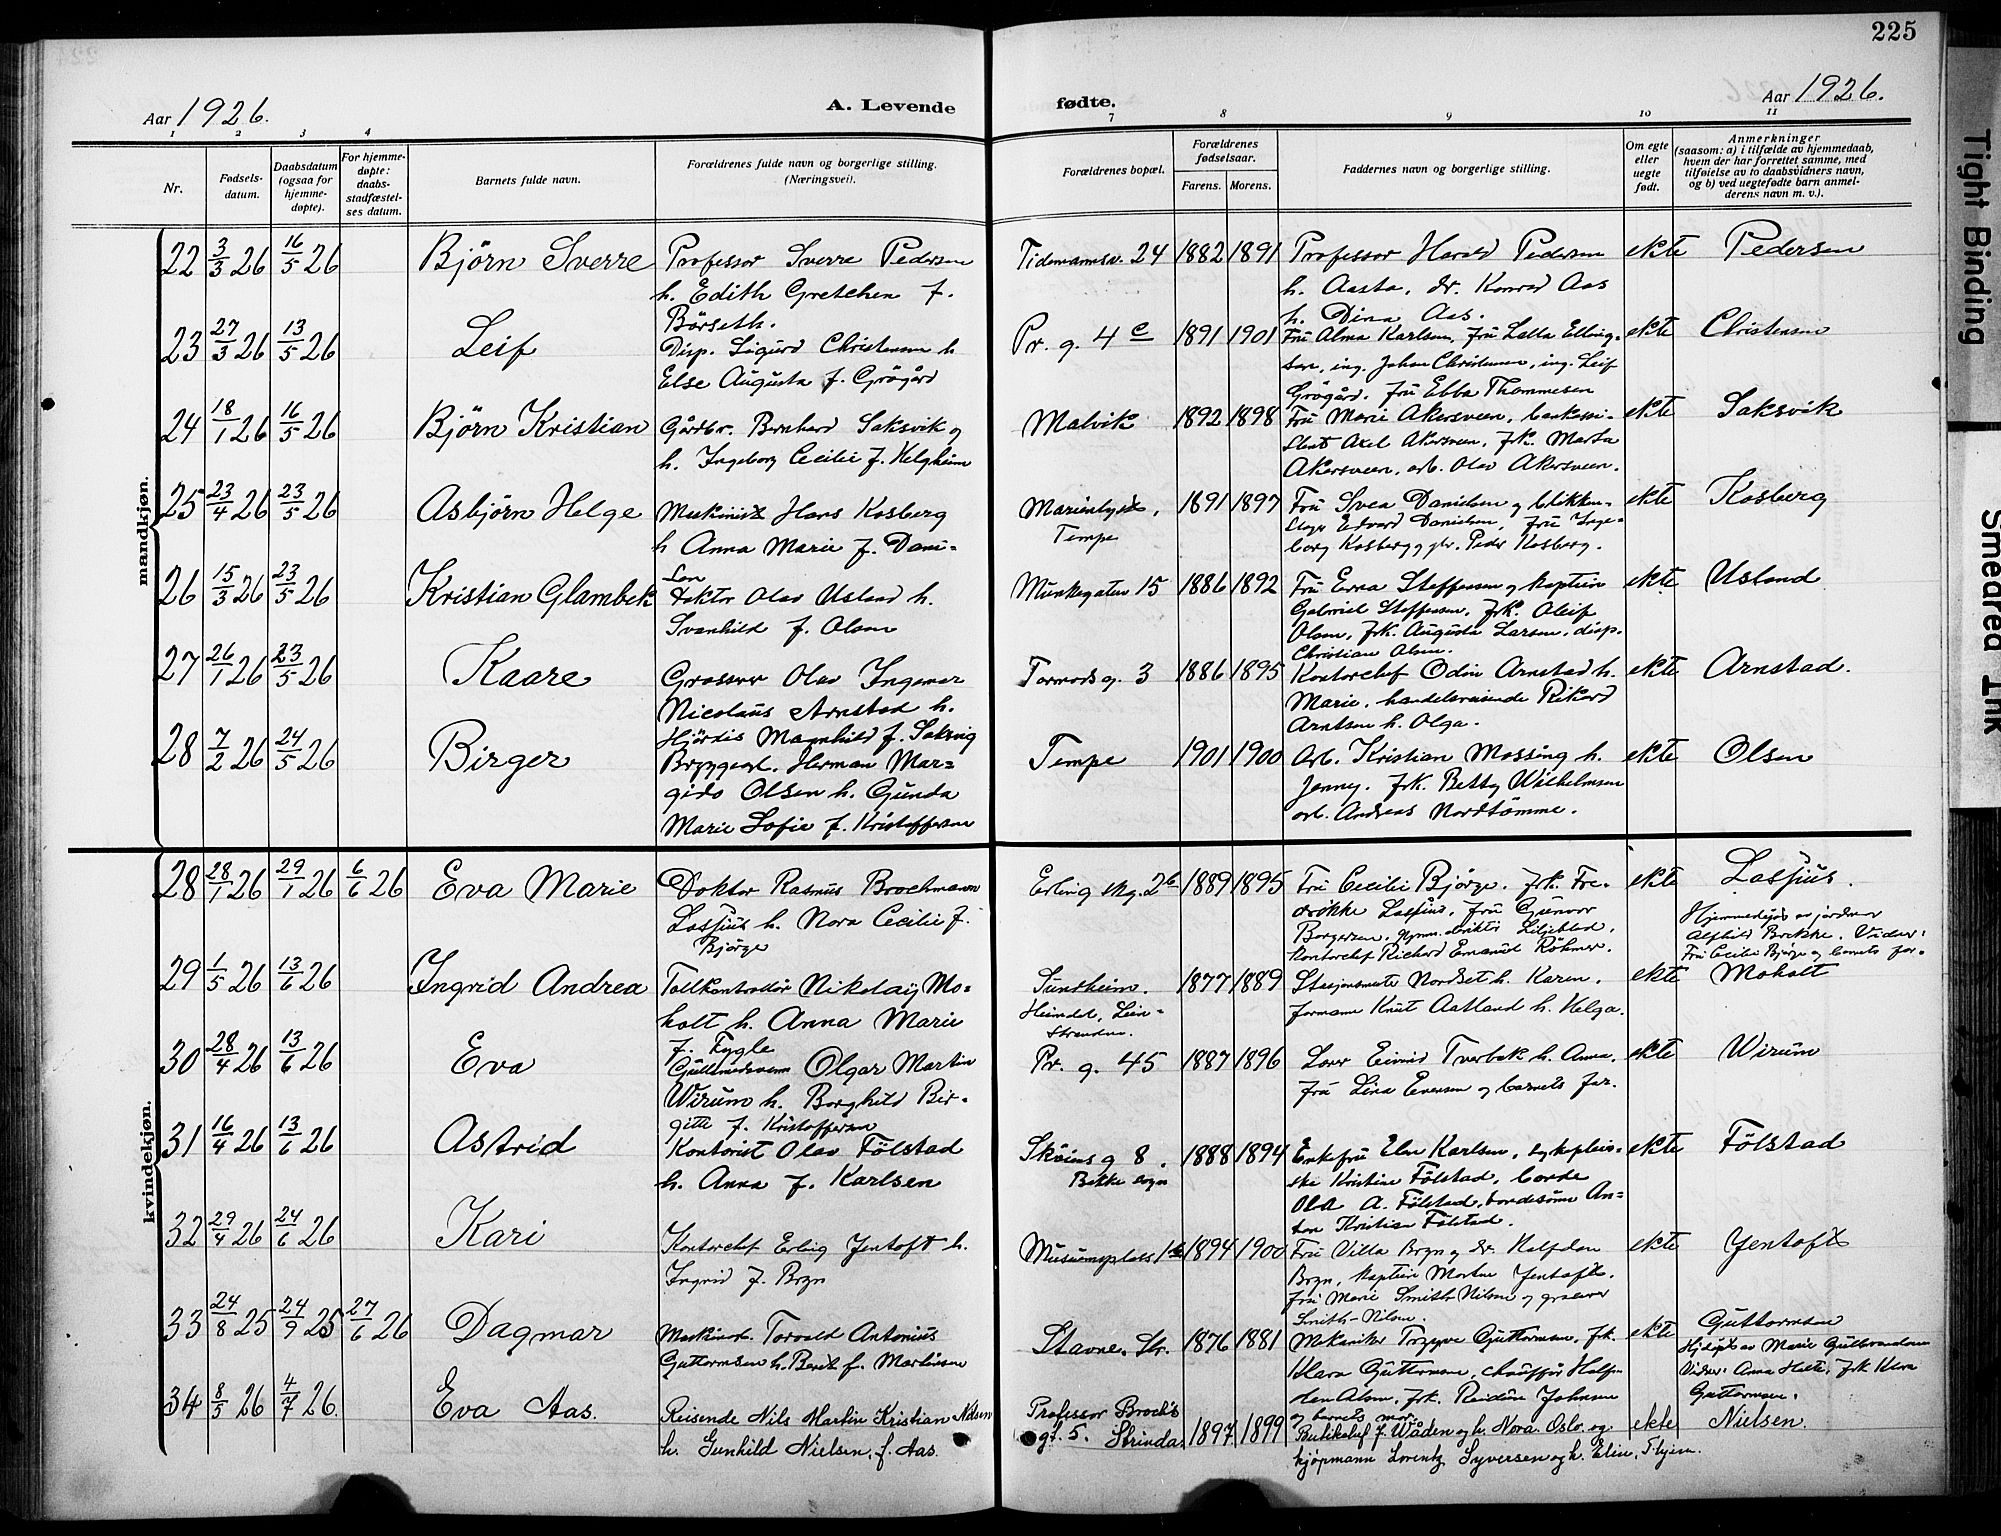 225
Aar 1926.
A. Levende
fødte.
Aar 1926.
1 2 3 4 7 8 9 10 11
Nr.
Fødsels-
datum.
Daabsdatum
(ogsaa for
hjemme-
døpte).
For hjemme-
døpte:
daabs-
stadfæstel-
ses datum.
Barnets fulde navn.
Forældrenes fulde navn og borgerlige stilling.
(Næringsvei).
Forældrenes bopæl.
Forældrenes
fødselsaar.
Farens. Morens.
Faddernes navn og borgerlige stilling.
Om egte
eller
uegte
født.
Anmerkninger
(saasom: a) i tilfælde av hjemmedaab,
hvem der har forrettet samme, med
tilføielse av to daabsvidners navn,
og b) ved uegtefødte barn anmel-
derens navn m. v.).
mandkjøn.
22 3/3 26 16/5 26 Bjørn Sverre
Professor Sverre Pedersen
h. Edith Gretchen f.
Börseth.
Tidemannsv. 24 1882 1891
Professor Harald Pedersen
h. Aasta, dr. Konrad Aas
h. Dina Aas.
ekte Pedersen
23 27/3 26 13/5 26 Leif
Disp. Sigurd Christensen h
Else Augusta f. Grögård
Pr. g. 4 c 1891 1901
Fru Alma Karlsen, Fru Lalla Elling-
sen, ing. Johan Christensen, ing. Leif
Grögård. fru Ebba Thommesen
ekte Christensen
24 18/1 26 16/5 26 Björn Kristian
Gårdbr. Bernhard Saksvik og
h. Ingeborg Cecilie f. Helgheim
Malvik 1892 1898
Fru Marie Akersveen,
Axel Akersveen, frk. Marta
Akersveen, arb. Olav Akersveen.
ekte Saksvik
25 23/4 26 23/5 26 Asbjörn Helge
Maskinist Hans Kosberg
h Anna Marie f. Dani-
sen
Marienlyst,
Tempe
1891 1897
Fru Svea Danielsen og blikken-
slager Edvard Danielsen, fru Inge-
borg Kosberg og Peder Kosberg.
ekte Kosberg
26 15/3 26 23/5 26 Kristian Glambek
Doktor Olav Usland h.
Svanhild f. Olsen
Munkegaten 15 1886 1892
Fru Erra Steffensen og kaptein
Gabriel Steffensen, frk.
Olsen, frk. Augusta Larsen, disp.
Christian Olsen.
ekte Usland
27 26/1 26 23/5 26 Kaare
Grosser Olav Ingemar
Nicolaus Arnstad h.
Hjördis Magnhild f. Saksvig
Tormodsg. 3 1886 1895
Kontorchef Odin Arnstad h.
Marie, handelsreisende Rikard
Arntsen h. Olga.
ekte Arnstad.
28 7/2 26 24/5 26 Birger
Bryggearb. Herman Mar-
gido Olsen h. Gunda
Marie Sofie f. Kristoffersen
Tempe 1901 1900
Arb. Kristian Mossing h.
Jenny. frk. Betsy Wilhelmsen
arb. Andreas Nordtömme.
ekte Olsen
kvindekjøn.
28 28/1 26 29/1 26 6/6 26 Eva Marie
Doktor Rasmus Brochmann
Lossius h. Nora Cecilie f.
Bjørge
Erling skg. 26 1889 1895
Fru Cecilie Bjørge. frk. Fre-
drikke Lossius, fru Gunvor
Borgersen, gymn. Liljeblad,
kontorchef Richard Emanuel Röhmer.
ekte Lossius.
Hjemmedöpt av jordmor
Alfhild Brekke. Vidner:
Fru Cecilie Bjørge og barnets far.
29 1/5 26 13/6 26 Ingrid Andrea
Tollkontrollör Nikolaij Mo-
holt h. Anna Marie
f. Fygle
Sundheim.
Heimdal, Lein-
stranden.
1877 1889
Stasjonsmester Nordset h. Karen.
formann Knut Aatland h. Helga.
ekte Moholt
30 28/4 26 13/6 26 Eva
Gullsmedsvenn Olgar Martin
Wirum h. Borghild Bir-
gitte f. Kristoffersen
Pr. g. 45 1887 1896
Eivind Tverbak h. Anna.
fru Lina Evensen og barnets far.
ekte Wirum
31 16/4 26 13/6 26 Astrid
Kontorist Olav Fölstad
h. Anna f. Karlsen
8.
Bakke sogn
1888 1894
Enkefru Elen Karlsen, sykepleier-
ske Kristine Fölstad, bonde
Ola A. Fölstad, bondesönn An-
ton Kristian Fölstad.
ekte Fölstad
32 29/4 26 24/6 26 Kari
Kontorchef Erling Jentoft h.
Ingrid f. Bryn
Museumsplass 1 1894 1900
Fru Villa Bryn og dr. Halfdan
Bryn, kaptein Morten Jentoft.
fru Marie Smith-Nilsen og grosserer
Smith-Nilsen.
ekte Jentoft
33 24/8 25 24/9 25 27/6 26 Dagmar
Maskinarb. Torvald Antonius
Guttormsen h. Berit f. Martinsen
Stavne. Str. 1876 1881
Mekaniker Trygve Guttormsen, frk.
Klara Guttormsen, chauffør Half-
dan Olsen, frk. Reidun Johnsen
og barnets mor.
ekte Guttormsen
Hjdöpt av Marie Gulbrandsen
Vidner: Anna Holte, frk Klara
Guttormsen.
34 8/5 26 4/7 26. Eva Aas.
Reisende Nils Martin Kristian Nielsen
h. Gunhild Nielsen. f. Aas.
Professor Brochs
gt. 5. Strinda. 1897 1899
Butikchef f. Wåden og h. Nora. Oslo. og
kjøpmann Lorentz Syversen og h. Elin.
ekte Nielsen.
Tight Binding
Smeared Ink